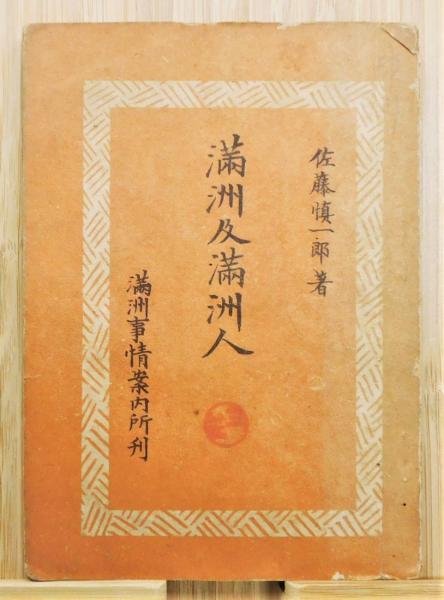 佐藤慎一郎著
満洲及満洲人
満洲事情案内所刊